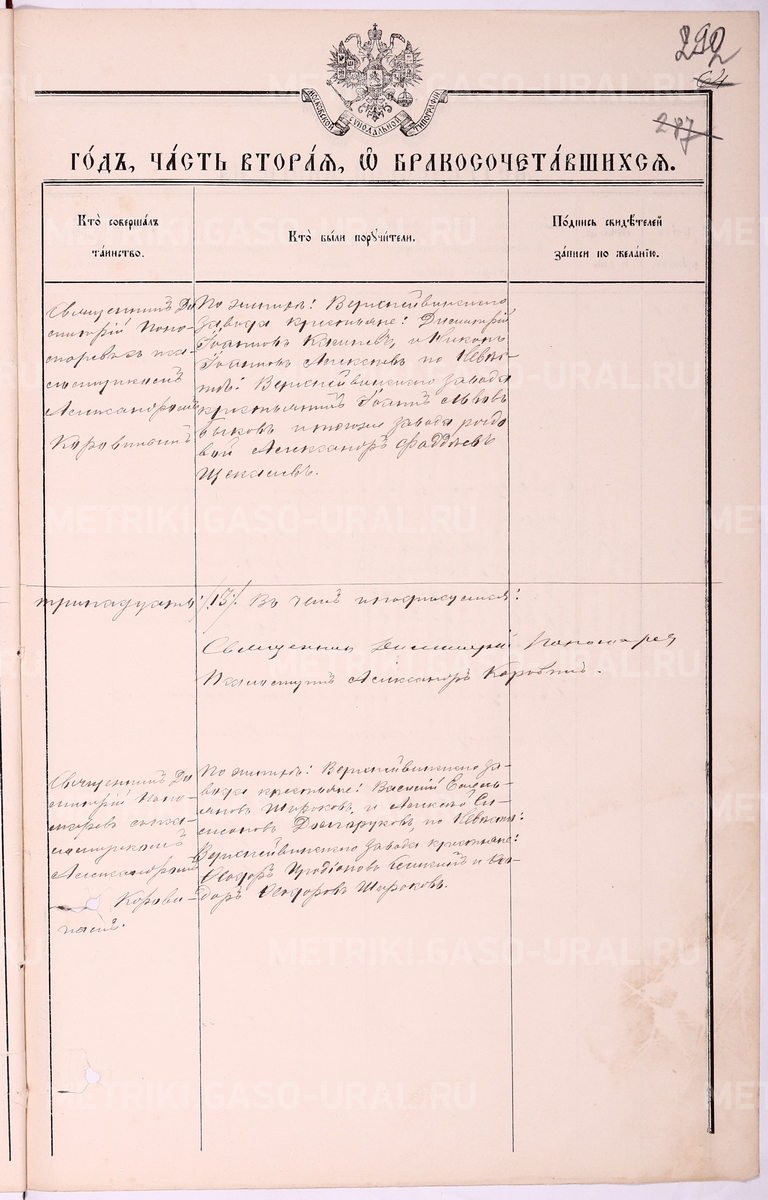 292
64
287
МОСКОВСКОЙ СѴНОДАЛЬНОЙ ТИПОГРАФІИ
ГО́ДЪ, ЧА́СТЬ ВТОРА́Я, Ѽ БРАКОСОЧЕТА́ВШИХСЯ.
Кто̀ соверша́лъ
та́инство.
Кто̀ бы́ли порꙋчи́тели.
По́дпись свидѣ́телей
за́писи по жела́нїю.
Священникъ Ди
митрій Поно
маревъ съ пса
ломщикомъ
Александромъ
Коровинымъ
По женихѣ: Верхнейвинскаго
завода крестьяне: Димитрій
Іоанновъ и Никонъ
Іоанновъ Алексѣевъ по невѣс
тѣ: Верхнейвинскаго завода
крестьянинъ Іоаннъ Львовъ
Быковъ и завода
Александръ Фаддѣевъ
Щекалевъ.
тринадцать /13/. Въ чемъ и подписуемся:
Священникъ Димитрій Пономаревъ
Псаломщикъ Александръ Коровинъ.
Священникъ Ди
митрій Поно
маревъ съ пса
ломщикомъ
Александромъ
Корови
нымъ.
По женихѣ: Верхнейвинскаго за-
вода крестьяне: Василій Емель-
яновъ Широковъ и Алексѣй Си-
меоновъ Долгоруковъ, по невѣстѣ:
Верхнейвинскаго завода крестьяне:
Ѳеодоръ Иродіоновъ и Ѳео-
доръ Ѳеодоровъ Широковъ.
METRIKI.GASO-URAL.RU